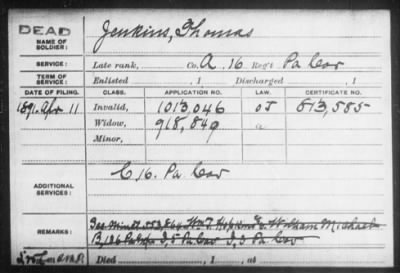 DEAD
NAME OF SOLDIER:
Jenkins, Thomas
SERVICE:
Late rank, Co. A. 16 Reg't Pa Cav
TERM OF SERVICE:
Enlisted , 1 Discharged , 1
DATE OF FILING. CLASS. APPLICATION NO. LAW. CERTIFICATE NO.
1891 Apr 11 Invalid, 1013,046 813,585
Widow, 918,849
Minor,
C 16. Pa Cav
ADDITIONAL SERVICES:
See Wm T. Hopkins
REMARKS:
Pa Cav I, 3 Pa Cav